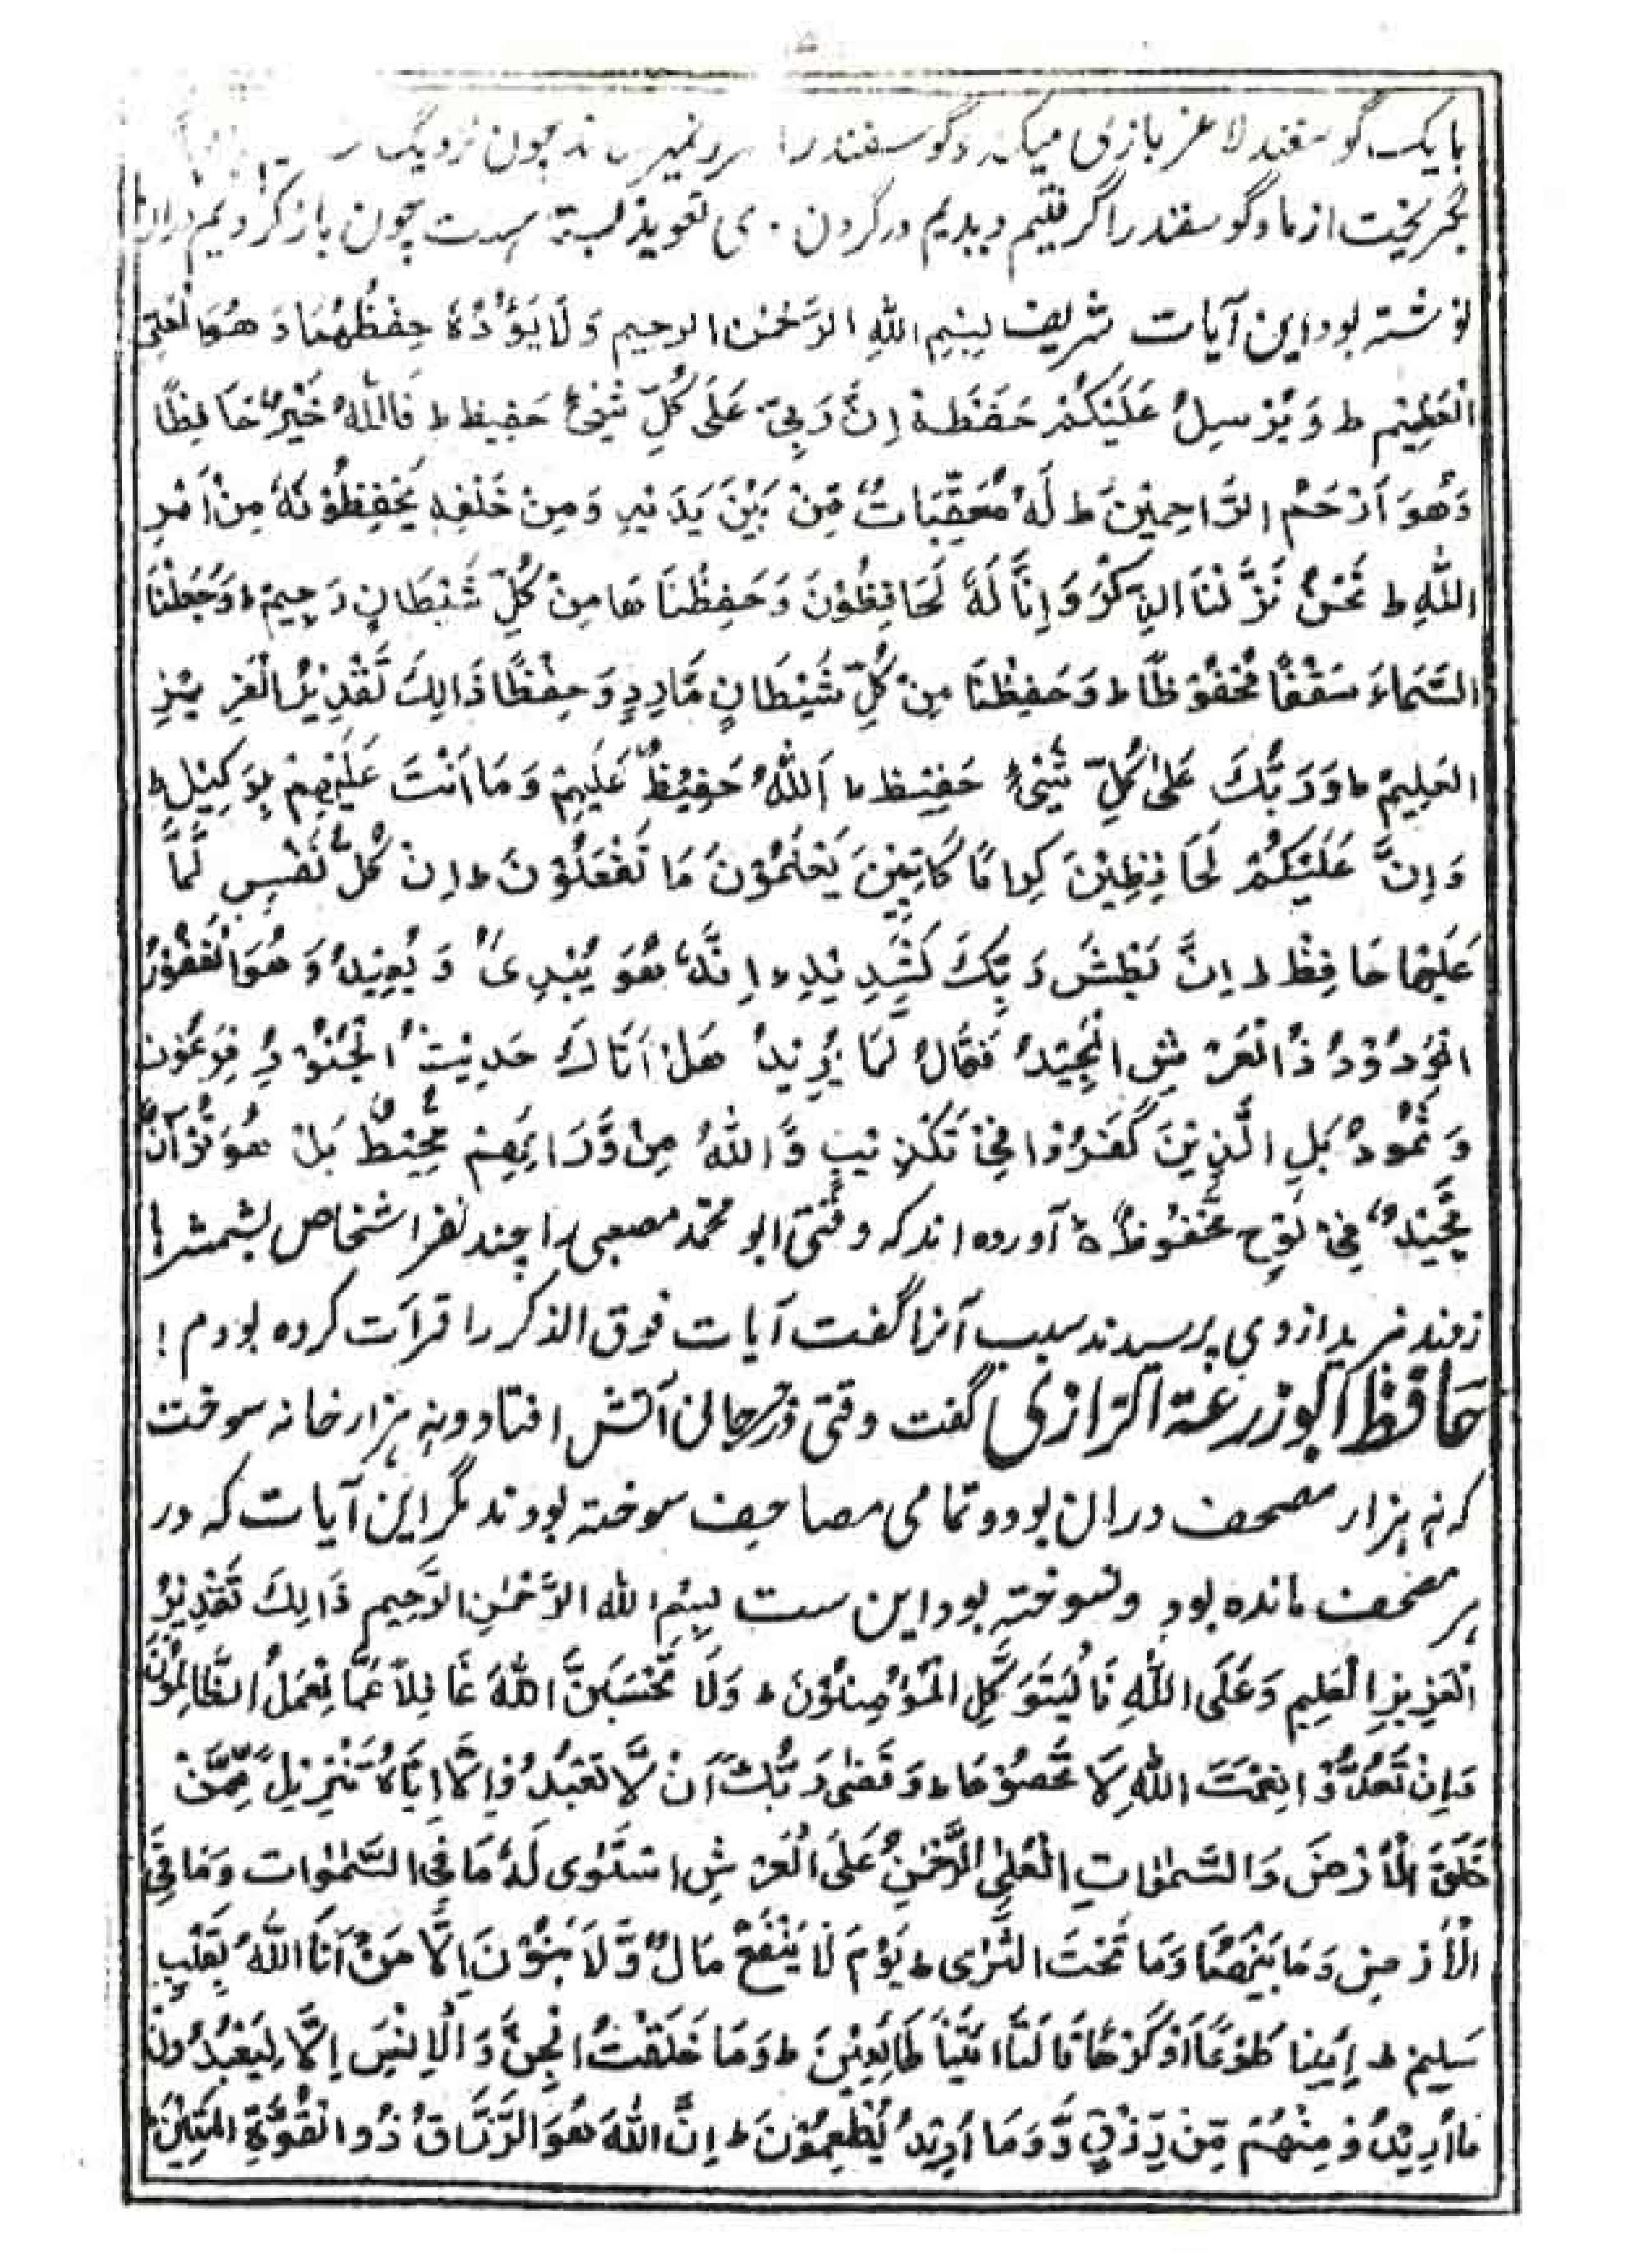 بایک گوسفند لاغر بازی میکند و گوسفند را ضرر نمیرساند چون نزدیک
بگریخت از ما و گوسفند را گرفتیم و بدیم در گردن وی تعویذ بسته است چون باز کردیم دران
نوشته بود این آیات شریف بِسْمِ اللهِ الرَّحْمٰنِ الرحیم وَلَا یَؤُدُهٗ حِفْظُهُمَا وَ هُوَ الْعَلِیُّ
الْعَظِیْم ط وَ یُرْسِلُ عَلَیْکُمْ حَفَظَة اِنَّ رَبِّیْ عَلٰی کُلِّ شَیْئٍ حَفِیْظ ط فَاللهُ خَیْرٌ حَافِظًا
وَهُوَ اَرْحَمُ الرَّاحِمِیْنَ ط لَهٗ مُعَقِّبَاتٌ مِّنْ بَیْنَ یَدَیْهِ وَمِنْ خَلْفِهٖ یَحْفِظُوْنَهٗ مِنْ اَمْرِ
اللهِ ط نَحْنُ نَزَّلْنَا الذِّکْرَ وَاِنَّا لَهٗ لَحَافِظُوْنَ وَحَفِظْنَا هَا مِنْ کُلِّ شَیْطَانٍ رَجِیْمٍ ط وَجَعَلْنَا
السَّمَاءَ سَقْفًا مَّحْفُوْظًا ط وَحَفِظْنَا مِنْ کُلِّ شَیْطَانٍ مَّارِدٍ وَحِفْظًا ذَالِکَ تَقْدِیْرُ الْعَزِیْزِ
العَلِیْمِ ط وَرَبُّکَ عَلٰی کُلِّ شَیْئٍ حَفِیْظ ط اَللهُ حَفِیْظٌ عَلَیْهِمْ وَمَا اَنْتَ عَلَیْهِمْ بِوَکِیْلٍ ط
وَاِنَّ عَلَیْکُمْ لَحَافِظِیْنَ کِرَامًا کَاتِبِیْنَ یَعْلَمُوْنَ مَا تَفْعَلُوْنَ ط اِنْ کُلُّ نَفْسٍ لَّمَّا
عَلَیْهَا حَافِظْ ط اِنَّ بَطْشَ رَبِّکَ لَشَدِیْدٍ ط اِنَّهٗ هُوَ یُبْدِیُٔ وَیُعِیْدُ وَهُوَ الْغَفُوْرُ
الْوَدُوْدُ ذُالْعَرْشِ الْمَجِیْدُ فَعَّالٌ لِّمَا یُرِیْدُ هَلْ اَتَاکَ حَدِیْثُ الْجُنُوْدِ فِرْعَوْنَ
وَثَمُوْدُ بَلِ الَّذِیْنَ کَفَرُوْا فِیْ تَکْذِیْبٍ وَّاللهُ مِنْ وَّرَائِهِمْ مُّحِیْطٌ بَلْ هُوَ قُرْآنٌ
مَّجِیْدٌ، فِیْ لَوْحٍ مَّحْفُوْظٍ ہ آورده اند که وقتی ابو محمد مصعبی را چند نفر اشخاص بشمشیر ا
زمند ضرر ازوی پرسیدند سبب آنرا گفت آیات فوق الذکر را قرآت کرده بودم !
حَافِظْ اَبُوْزُرْعَة الرَّازِیْ گفت وقتی در جالی آتش افتاد و نه هزار خانه سوخت
که نه هزار مصحف دران بود و تمامی مصاحف سوخته بودند مگر این آیات که در
هر مصحف مانده بود و نسوخته بود این ست بِسْمِ الله الرَّحْمٰنِ الرَّحِیم ذَالِکَ تَقْدِیْرُ
الْعَزِیْزِ الْعَلِیمِ وَعَلَی اللهِ فَالْیَتَوَکَّلِ الْمُؤْمِنُوْنَ ط وَلَا تَحْسَبَنَّ اللهَ غَافِلاً عَمَّا یَعْمَلُ الظَّالِمُوْنَ
وَاِنْ تَعُدُّوْا نِعْمَتَ اللهِ لَا تُحْصُوْهَا ط وَقَضٰی رَبُّکَ اَنْ لَّا تَعْبُدُوْا اِلَّا اِیَّاهُ تَنْزِیْلِ مِّمَّنْ
خَلَقَ الْاَرْضَ وَالسَّمٰوَاتِ الْعُلٰی الرَّحْمٰنِ عَلَی الْعَرْشِ اسْتَوٰی لَهٗ مَا فِی السَّمٰوَات وَمَا فِی
الْاَرْضِ وَمَا بَیْنَهُمَا وَمَا تَحْتَ الثَّرٰی ط یَوْمَ لَا یَنْفَعُ مَالٌ وَّلَا بَنُوْنَ اِلَّا مَنْ اَتَا اللهَ بِقَلْبٍ
سَلِیْمٍ ط اِیْتِیَا طَوْعًا اَوْ کَرْهًا قَالَتَا اَتَیْنَا طَائِعِیْنَ ط وَمَا خَلَقْتُ الْجِنَّ وَالْاِنْسَ اِلَّا لِیَعْبُدُوْنَ
مَا اُرِیْدُ وْمِنْهُمْ مِّنْ رِّزْقٍ وَّمَا اُرِیْدُ یُطْعِمُوْنَ ط اِنَّ اللهَ هُوَ الرَّزَّاقُ ذُو الْقُوَّةِ الْمَتِیْنُ